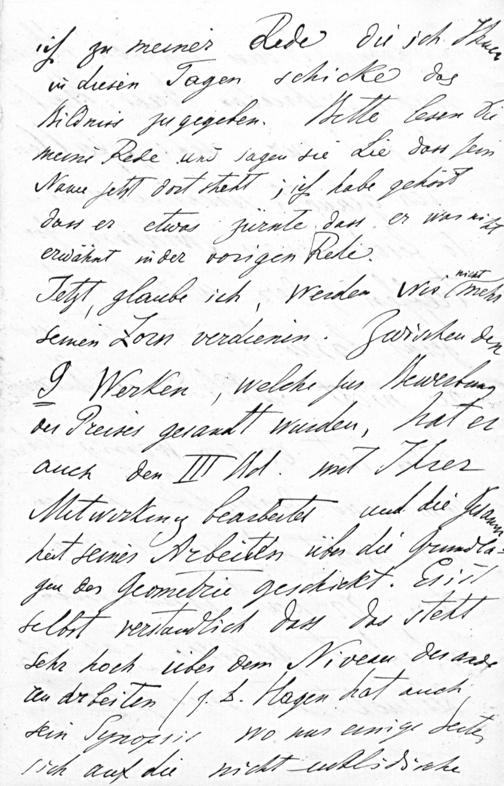 ich zu meiner Rede die ich Ihnen
in diesen Tagen schicke das
Bildniss zugegeben. Bitte lesen Sie
meine Rede und sagen sie Lie dass sein
Name jetzt dort steht; ich habe gehört
dass er etwas zürnte dass er war nicht
erwähnt in der vorigen Rede.
Jetzt, glaube ich, werden wir nicht mehr
seinen Zorn verdienen. Zwischen den
9 Werken, welche zur Bewerbung
des Preises gesandt wurden, hat er
auch den III Bd. mit Ihrer
Mitwirkung bearbeitet und die Gesamt
heit seiner Arbeiten über die Grundla-
gen der Geometrie geschickt. Es ist
selbst verständlich dass das steht
sehr hoch über dem Niveau der ande
ren Arbeiten (z. B. Hagen hat auch
sein Synopsis wo nur einige Seiten
sich auf die nicht-euklidische